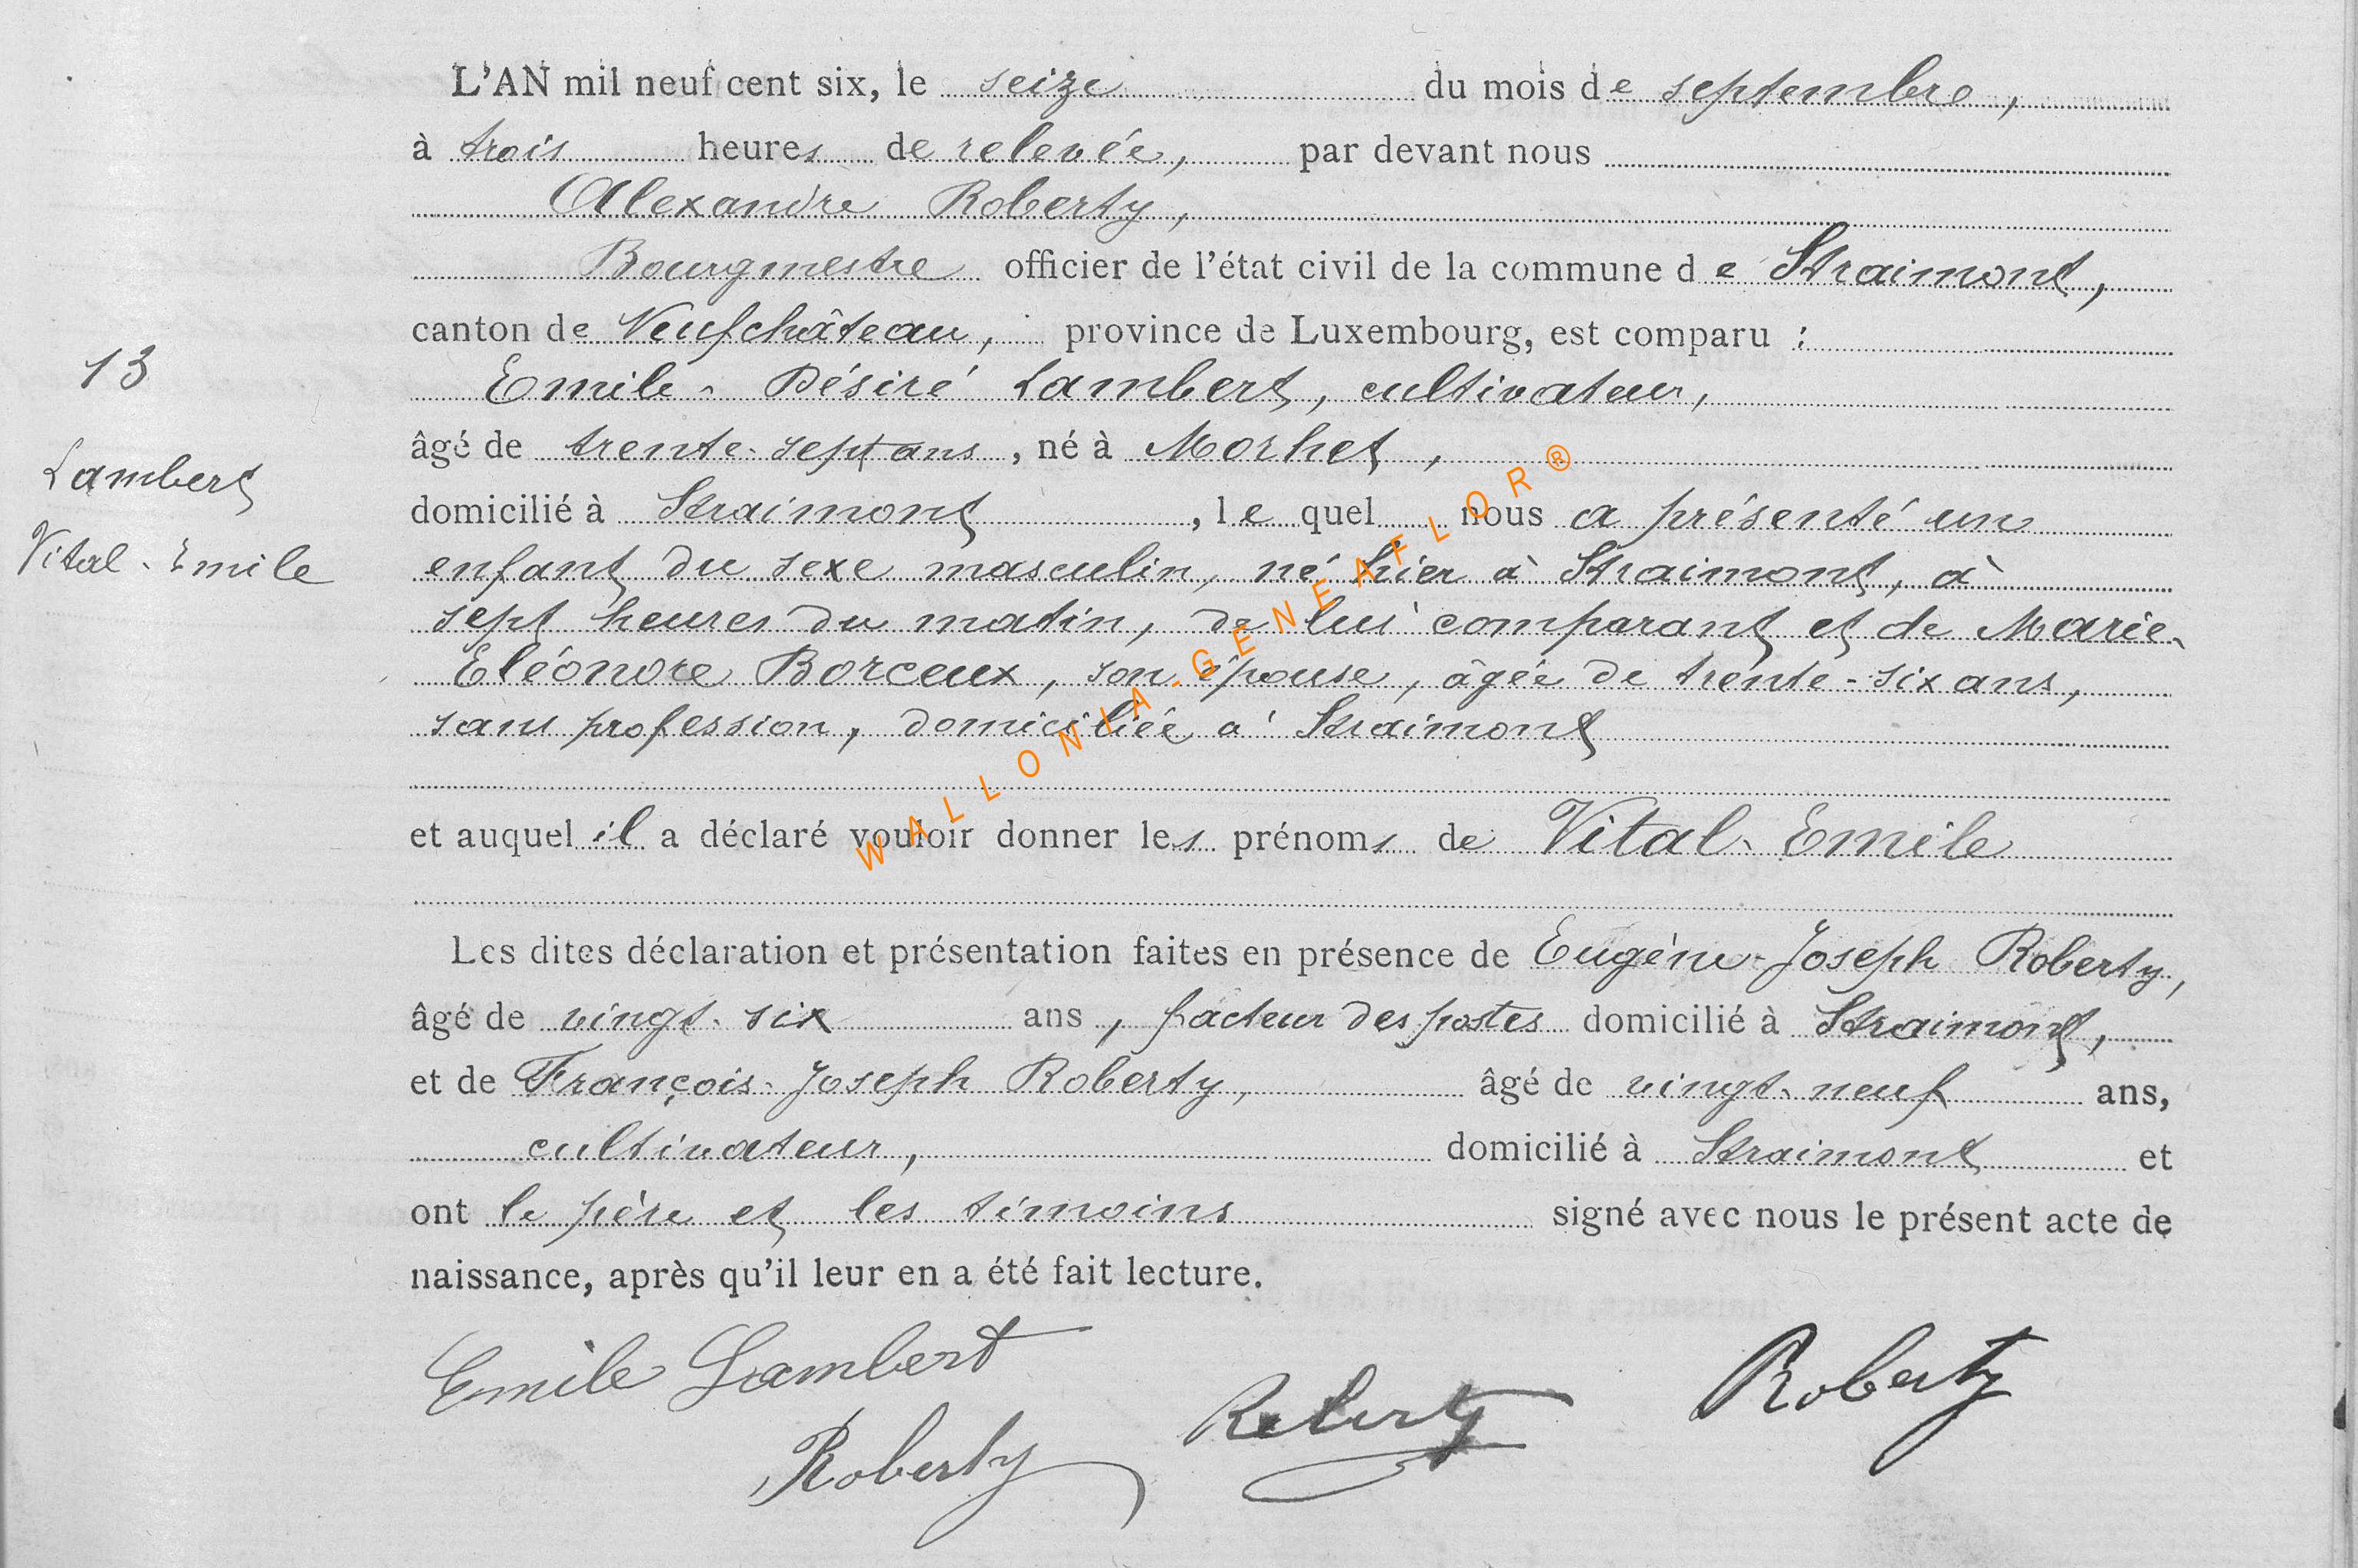 L'AN mil neuf cent six, le seize du mois de septembre,
à trois heures de relevée, par devant nous
Alexandre Roberty,
Bourgmestre officier de l'état civil de la commune de Straimont,
canton de Neufchâteau, province de Luxembourg, est comparu :
13
Emile-Désiré Lambert, cultivateur,
âgé de trente-sept ans, né à Morhet,
Lambert
domicilié à Straimont, le quel nous a présenté un
Vital-Emile
enfant du sexe masculin, né hier à Straimont, à
sept heures du matin, de lui comparant et de Marie-
Eléonore Borceux, son épouse, âgée de trente-six ans,
sans profession, domiciliée à Straimont
et auquel il a déclaré vouloir donner les prénoms de Vital-Emile
Les dites déclaration et présentation faites en présence de Eugène-Joseph Roberty,
âgé de vingt-six ans, facteur des postes domicilié à Straimont,
et de François-Joseph Roberty, âgé de vingt-neuf ans,
cultivateur, domicilié à Straimont et
ont le père et les témoins signé avec nous le présent acte de
naissance, après qu'il leur en a été fait lecture.
Emile Lambert
Roberty Roberty Roberty
WALLONIA-GENEAFLOR®